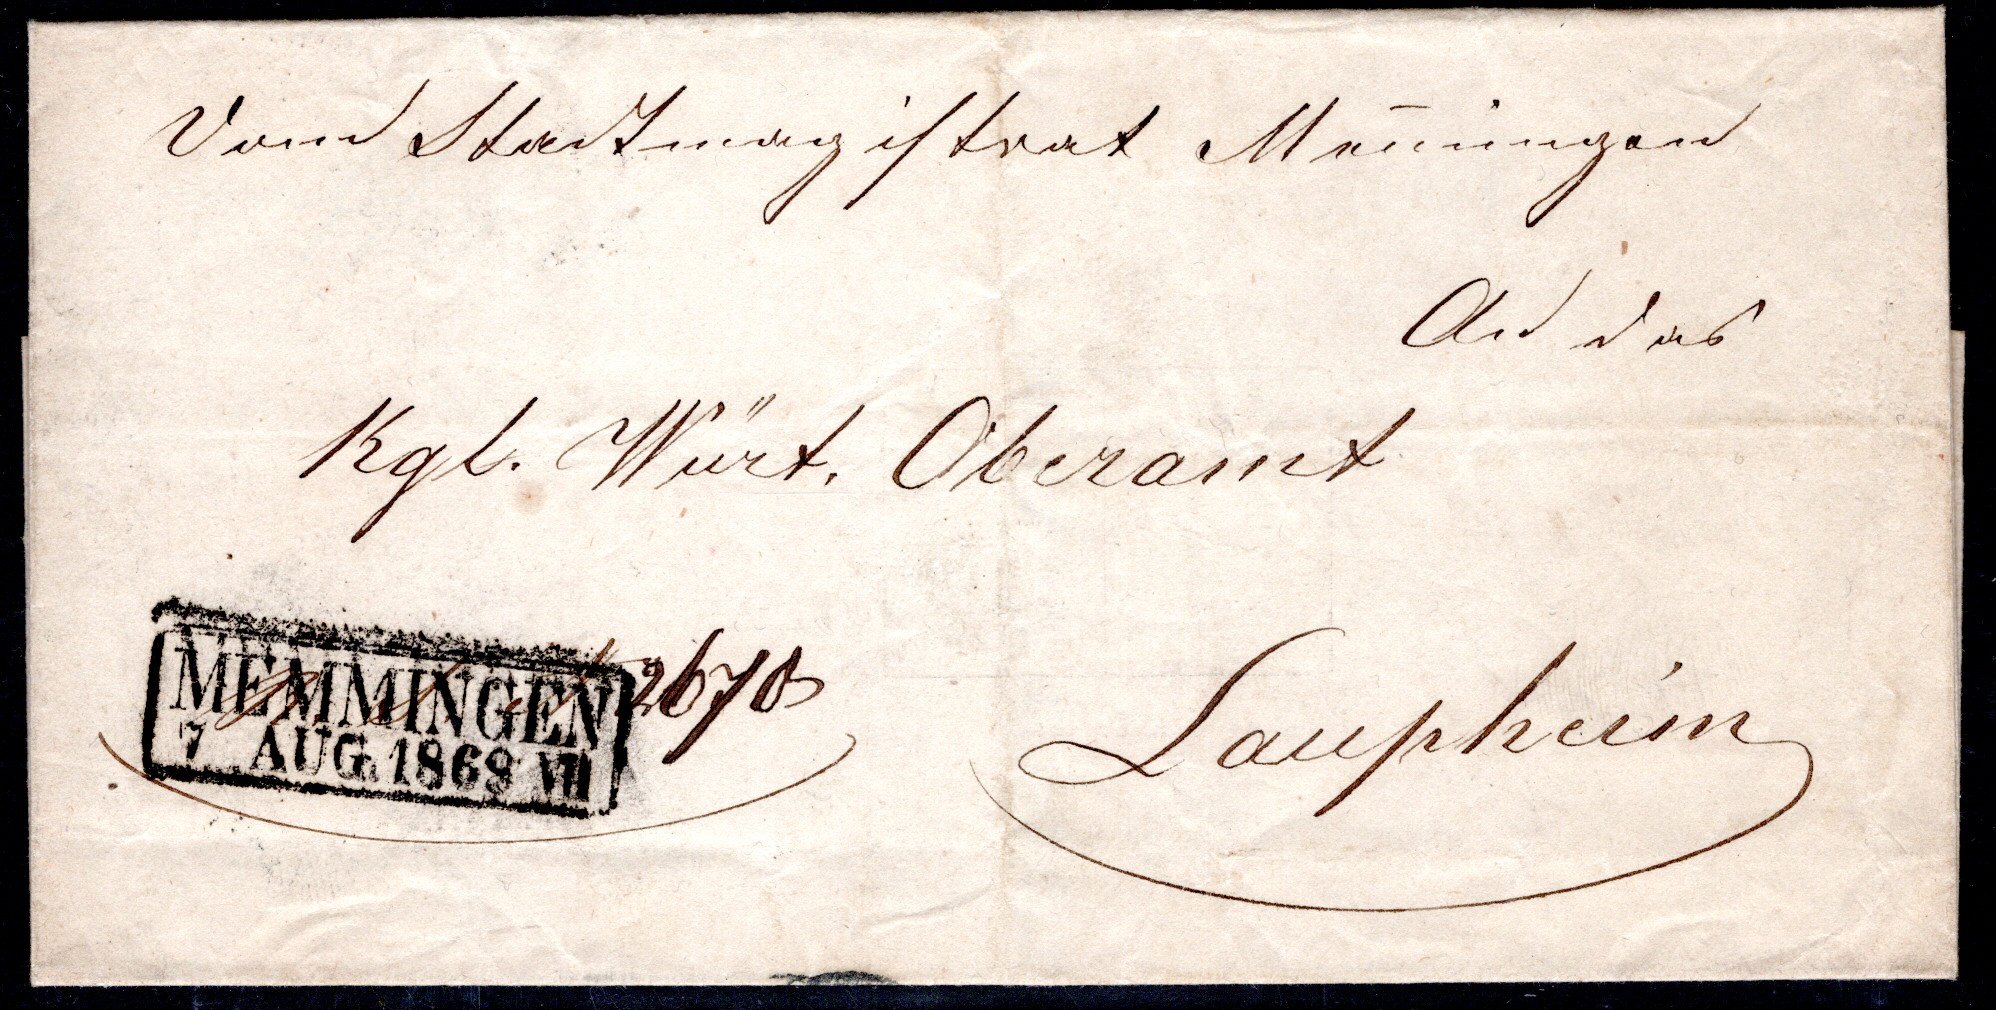 Vom Stadtmagistrat Mem̄ingen
An das
Kgl. Würt. Oberamt
Laupheim
2678
MEMMINGEN
7 AUG. 1868 VII